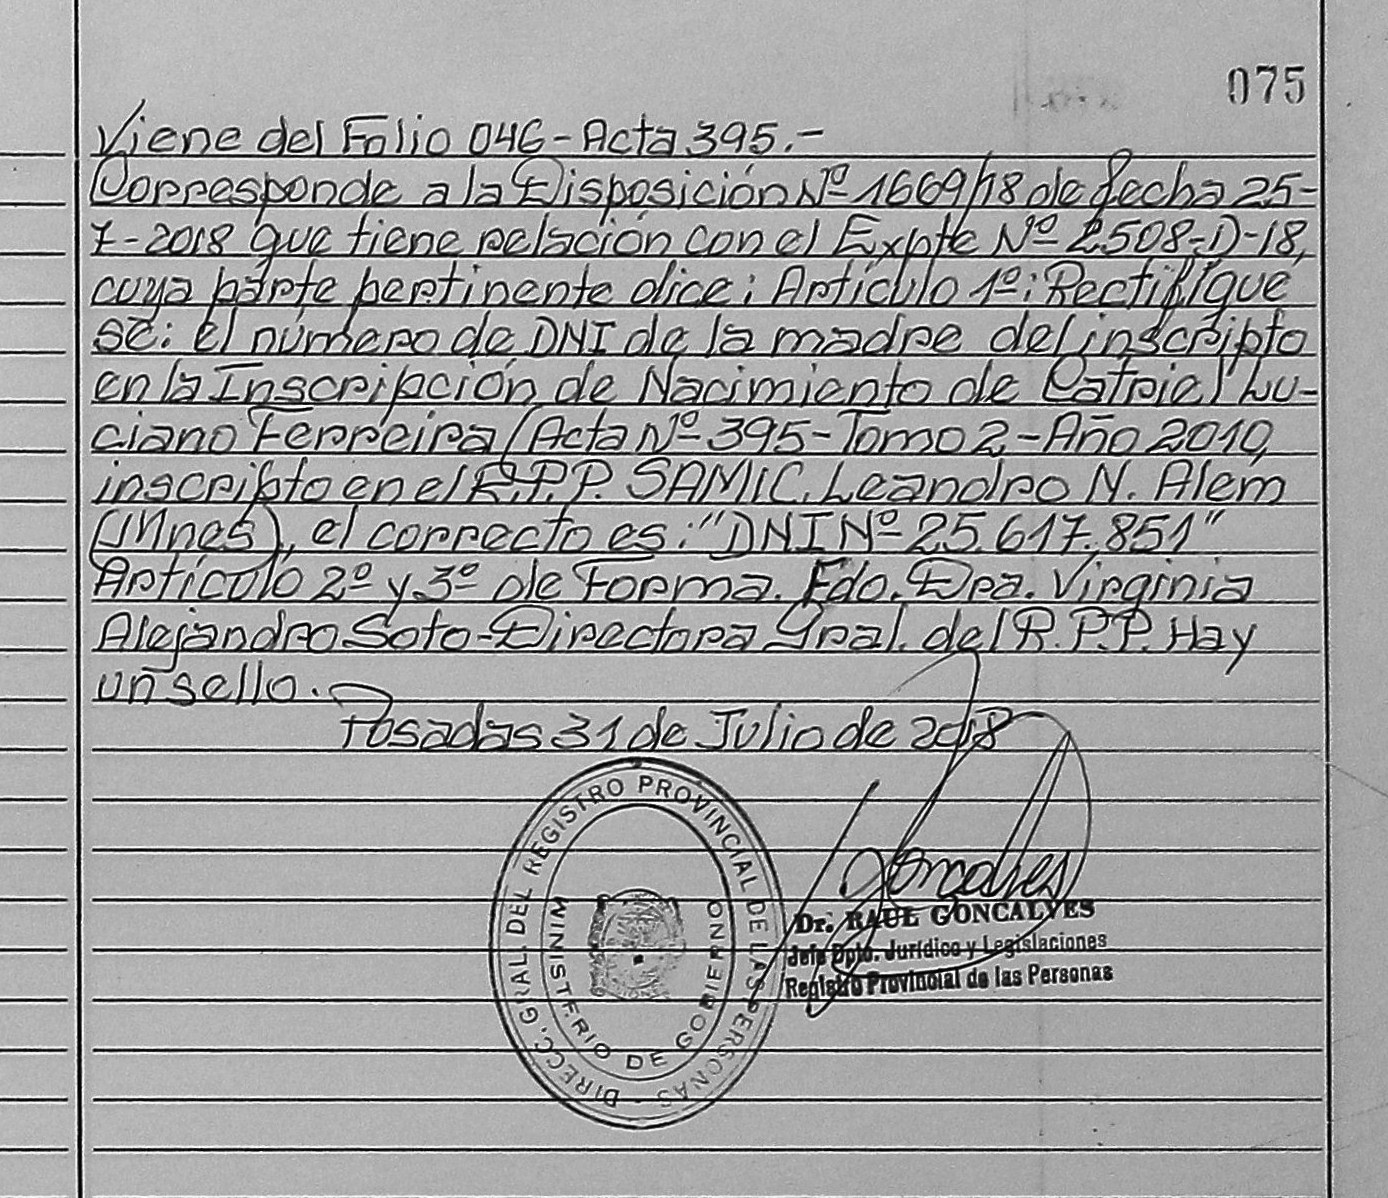 075
Viene del Folio 046 - Acta 395.-
Corresponde a la Disposición Nº 1669/18 de fecha 25-
7-2018 que tiene relación con el Expte Nº 2508-D-18,
cuya parte pertinente dice: Artículo 1º: Rectifique
se: el número de DNI de la madre del inscripto
en la Inscripción de Nacimiento de Catriel Lu-
ciano Ferreira (Acta Nº 395 - Tomo 2 - Año 2010,
inscripto en el R.P.P. SAMIC. Leandro N. Alem
(Mnes), el correcto es: "DNI Nº 25.617.851"
Artículo 2º y 3º de Forma. Fdo. Dra. Virginia
Alejandro Soto - Directora Gral. del R.P.P. Hay
un sello.
Posadas 31 de Julio de 2018
DIRECC. GRAL. DEL REGISTRO PROVINCIAL DE LAS PERSONAS -
MINISTERIO DE GOBIERNO
Goncalves
Dr. RAUL GONCALVES
Jefe Dpto. Jurídico y Legislaciones
Registro Provincial de las Personas